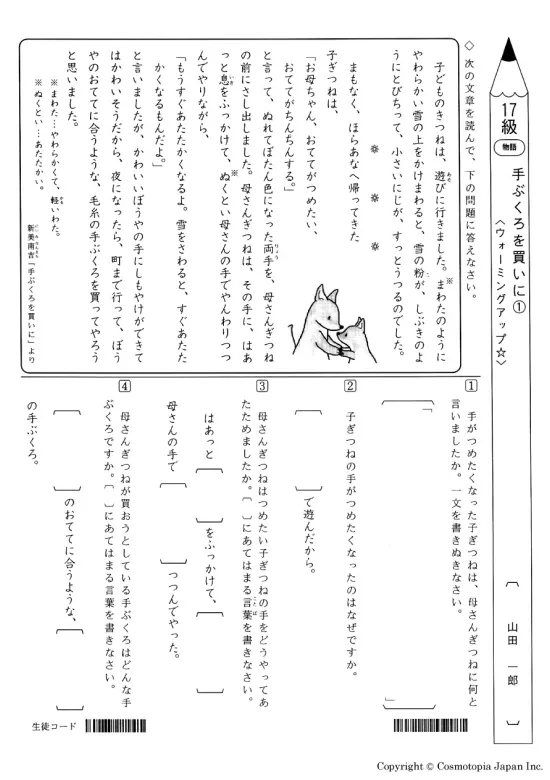 17級
物語
手ぶくろを買いに①
〈ウォーミングアップ☆〉
山田 一郎
◇ 次の文章を読んで、下の問題に答えなさい。
子どものきつねは、遊びに行きました。※まわたのように
やわらかい雪の上をかけまわると、雪の粉が、しぶきのよ
うにとびちって、小さいにじが、すっとうつるのでした。
* * *
まもなく、ほらあなへ帰ってきた
子ぎつねは、
「お母ちゃん、おててがつめたい、
おててがちんちんする。」
と言って、ぬれてぼたん色になった両手を、母さんぎつね
の前にさし出しました。母さんぎつねは、その手に、はあ
っと息をふっかけて、※ぬくとい母さんの手でやんわりつつ
んでやりながら、
「もうすぐあたたかくなるよ。雪をさわると、すぐあたた
かくなるもんだよ。」
と言いましたが、かわいいぼうやの手にしもやけができて
はかわいそうだから、夜になったら、町まで行って、ぼう
やのおててに合うような、毛糸の手ぶくろを買ってやろう
と思いました。
※まわた…やわらかくて、軽いわた。
※ぬくとい…あたたかい。
新美南吉「手ぶくろを買いに」より
1 手がつめたくなった子ぎつねは、母さんぎつねに何と
言いましたか。一文を書きぬきなさい。
「 」
2 子ぎつねの手がつめたくなったのはなぜですか。
〔 〕で遊んだから。
3 母さんぎつねはつめたい子ぎつねの手をどうやってあ
たためましたか。〔 〕にあてはまる言葉を書きなさい。
はあっと〔 〕をふっかけて、〔 〕
母さんの手で〔 〕つつんでやった。
4 母さんぎつねが買おうとしている手ぶくろはどんな手
ぶくろですか。〔 〕にあてはまる言葉を書きなさい。
〔 〕のおててに合うような、〔 〕
の手ぶくろ。
生徒コード
Copyright © Cosmotopia Japan Inc.